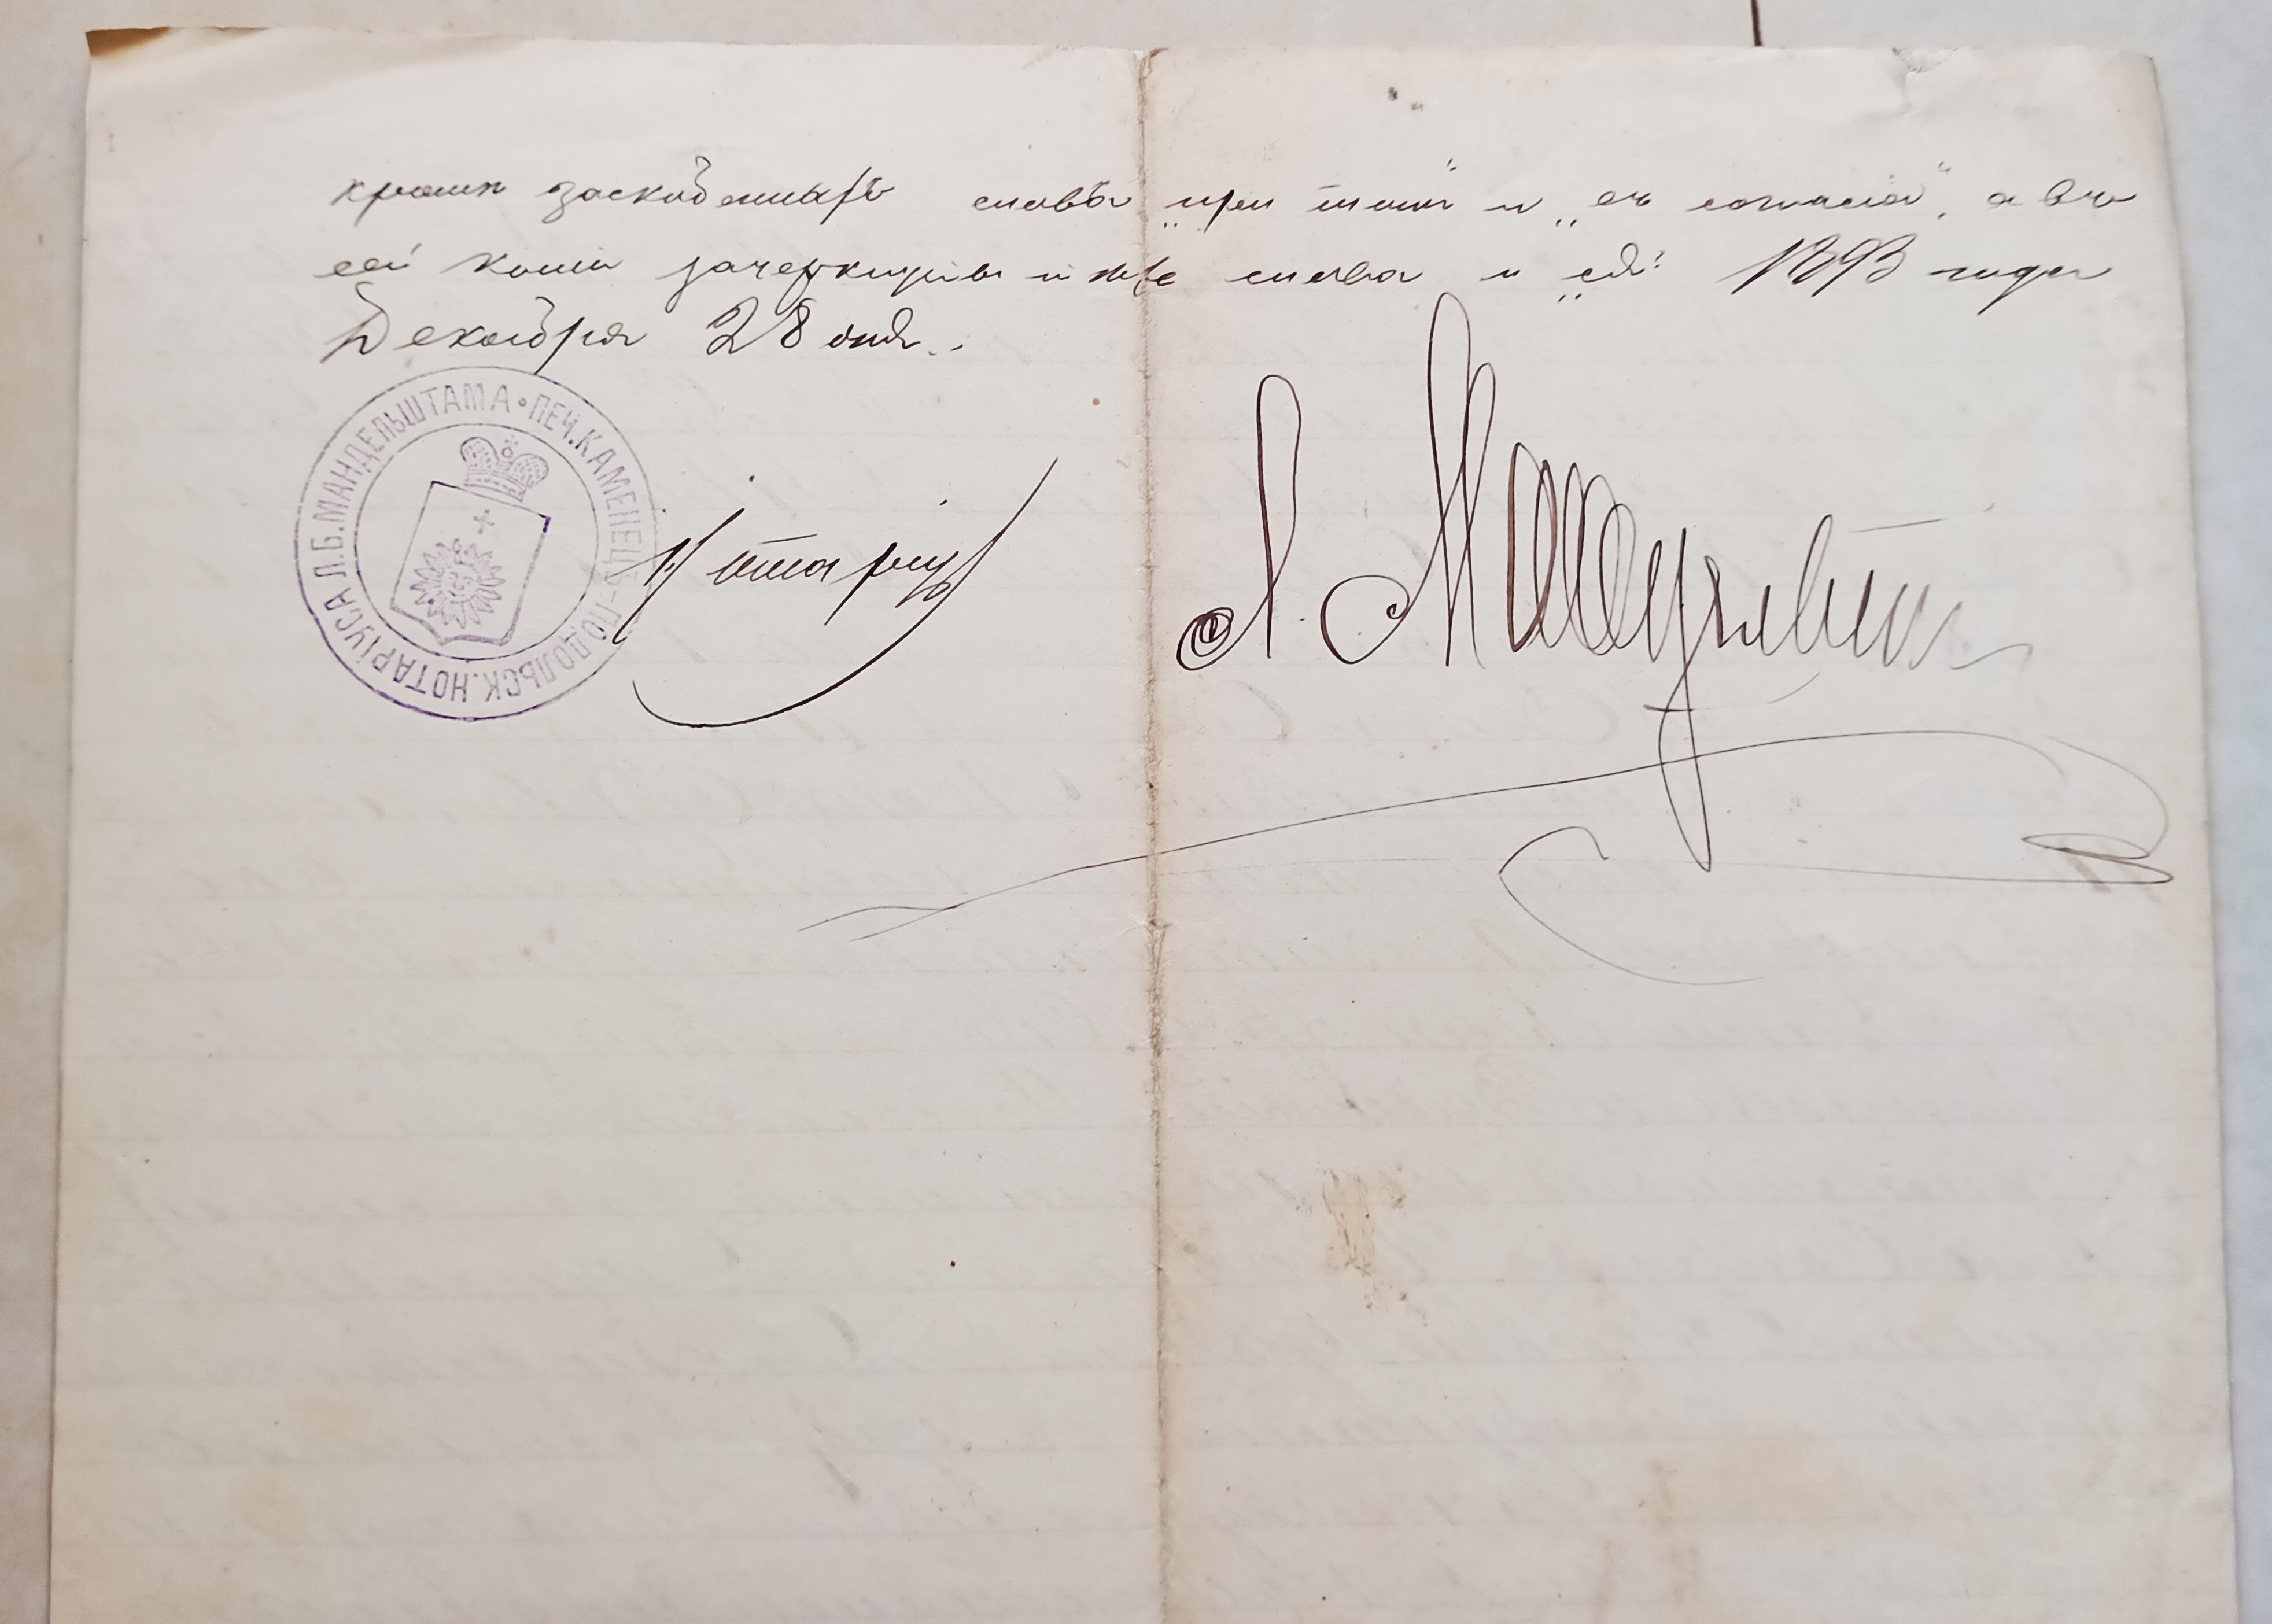 кромѣ заскобенныхъ словъ „при томъ“ и „съ согласія“, а въ
сей копіи зачеркнуты и же слова и „сей“. 1893 года
Декабря 28 дня.
ПЕЧ. КАМЕНЕЦЪ-ПОДОЛЬСК. НОТАРІУСА Л.Б. МАНДЕЛЬШТАМА
Нотаріусъ Л.